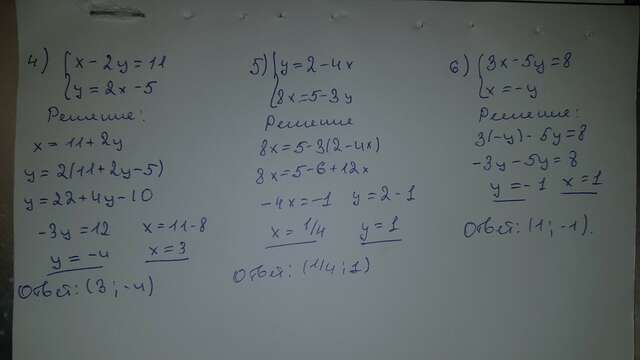 4) { x - 2y = 11
y = 2x - 5
Решение:
x = 11 + 2y
y = 2(11 + 2y - 5)
y = 22 + 4y - 10
-3y = 12   x = 11 - 8
y = -4   x = 3
Ответ: (3 ; -4)
5) { y = 2 - 4x
8x = 5 - 3y
Решение
8x = 5 - 3(2 - 4x)
8x = 5 - 6 + 12x
-4x = -1   y = 2 - 1
x = 1/4   y = 1
Ответ: (1/4 ; 1)
6) { 3x - 5y = 8
x = -y
Решение:
3(-y) - 5y = 8
-3y - 5y = 8
y = -1   x = 1
Ответ: (1 ; -1).